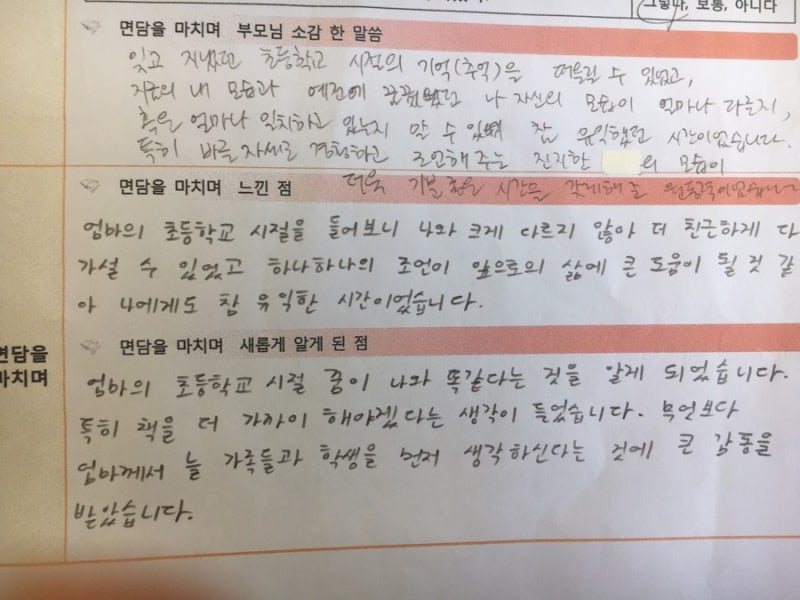 그렇다, 보통, 아니다
면담을 마치며 부모님 소감 한 말씀
잊고 지냈던 초등학교 시절의 기억(추억)을 떠올릴 수 있었고,
지금의 내 모습과 예전에 꿈꿨었던 나 자신의 모습이 얼마나 다른지,
혹은 얼마나 일치하고 있는지 알 수 있었던 참 유익했던 시간이었습니다.
특히 바른 자세로 경청하고 조언해주는 진지한 의 모습이
더욱 기분 좋은 시간을 갖게해 준
면담을 마치며 느낀 점
엄마의 초등학교 시절을 들어보니 나와 크게 다르지 않아 더 친근하게 다
가설 수 있었고 하나하나의 조언이 앞으로의 삶에 큰 도움이 될 것 같
아 나에게도 참 유익한 시간이었습니다.
면담을 마치며
면담을 마치며 새롭게 알게 된 점
엄마의 초등학교 시절 꿈이 나와 똑같다는 것을 알게 되었습니다.
특히 책을 더 가까이 해야겠다는 생각이 들었습니다. 무엇보다
엄마께서 늘 가족들과 학생을 먼저 생각하신다는 것에 큰 감동을
받았습니다.